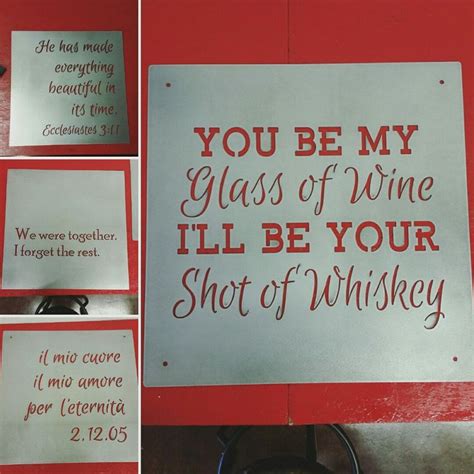 He has made
everything
beautiful in
its time.
Ecclesiastes 3:11
We were together.
I forget the rest.
il mio cuore
il mio amore
per l'eternità
2.12.05
YOU BE MY
Glass of Wine
I'LL BE YOUR
Shot of Whiskey